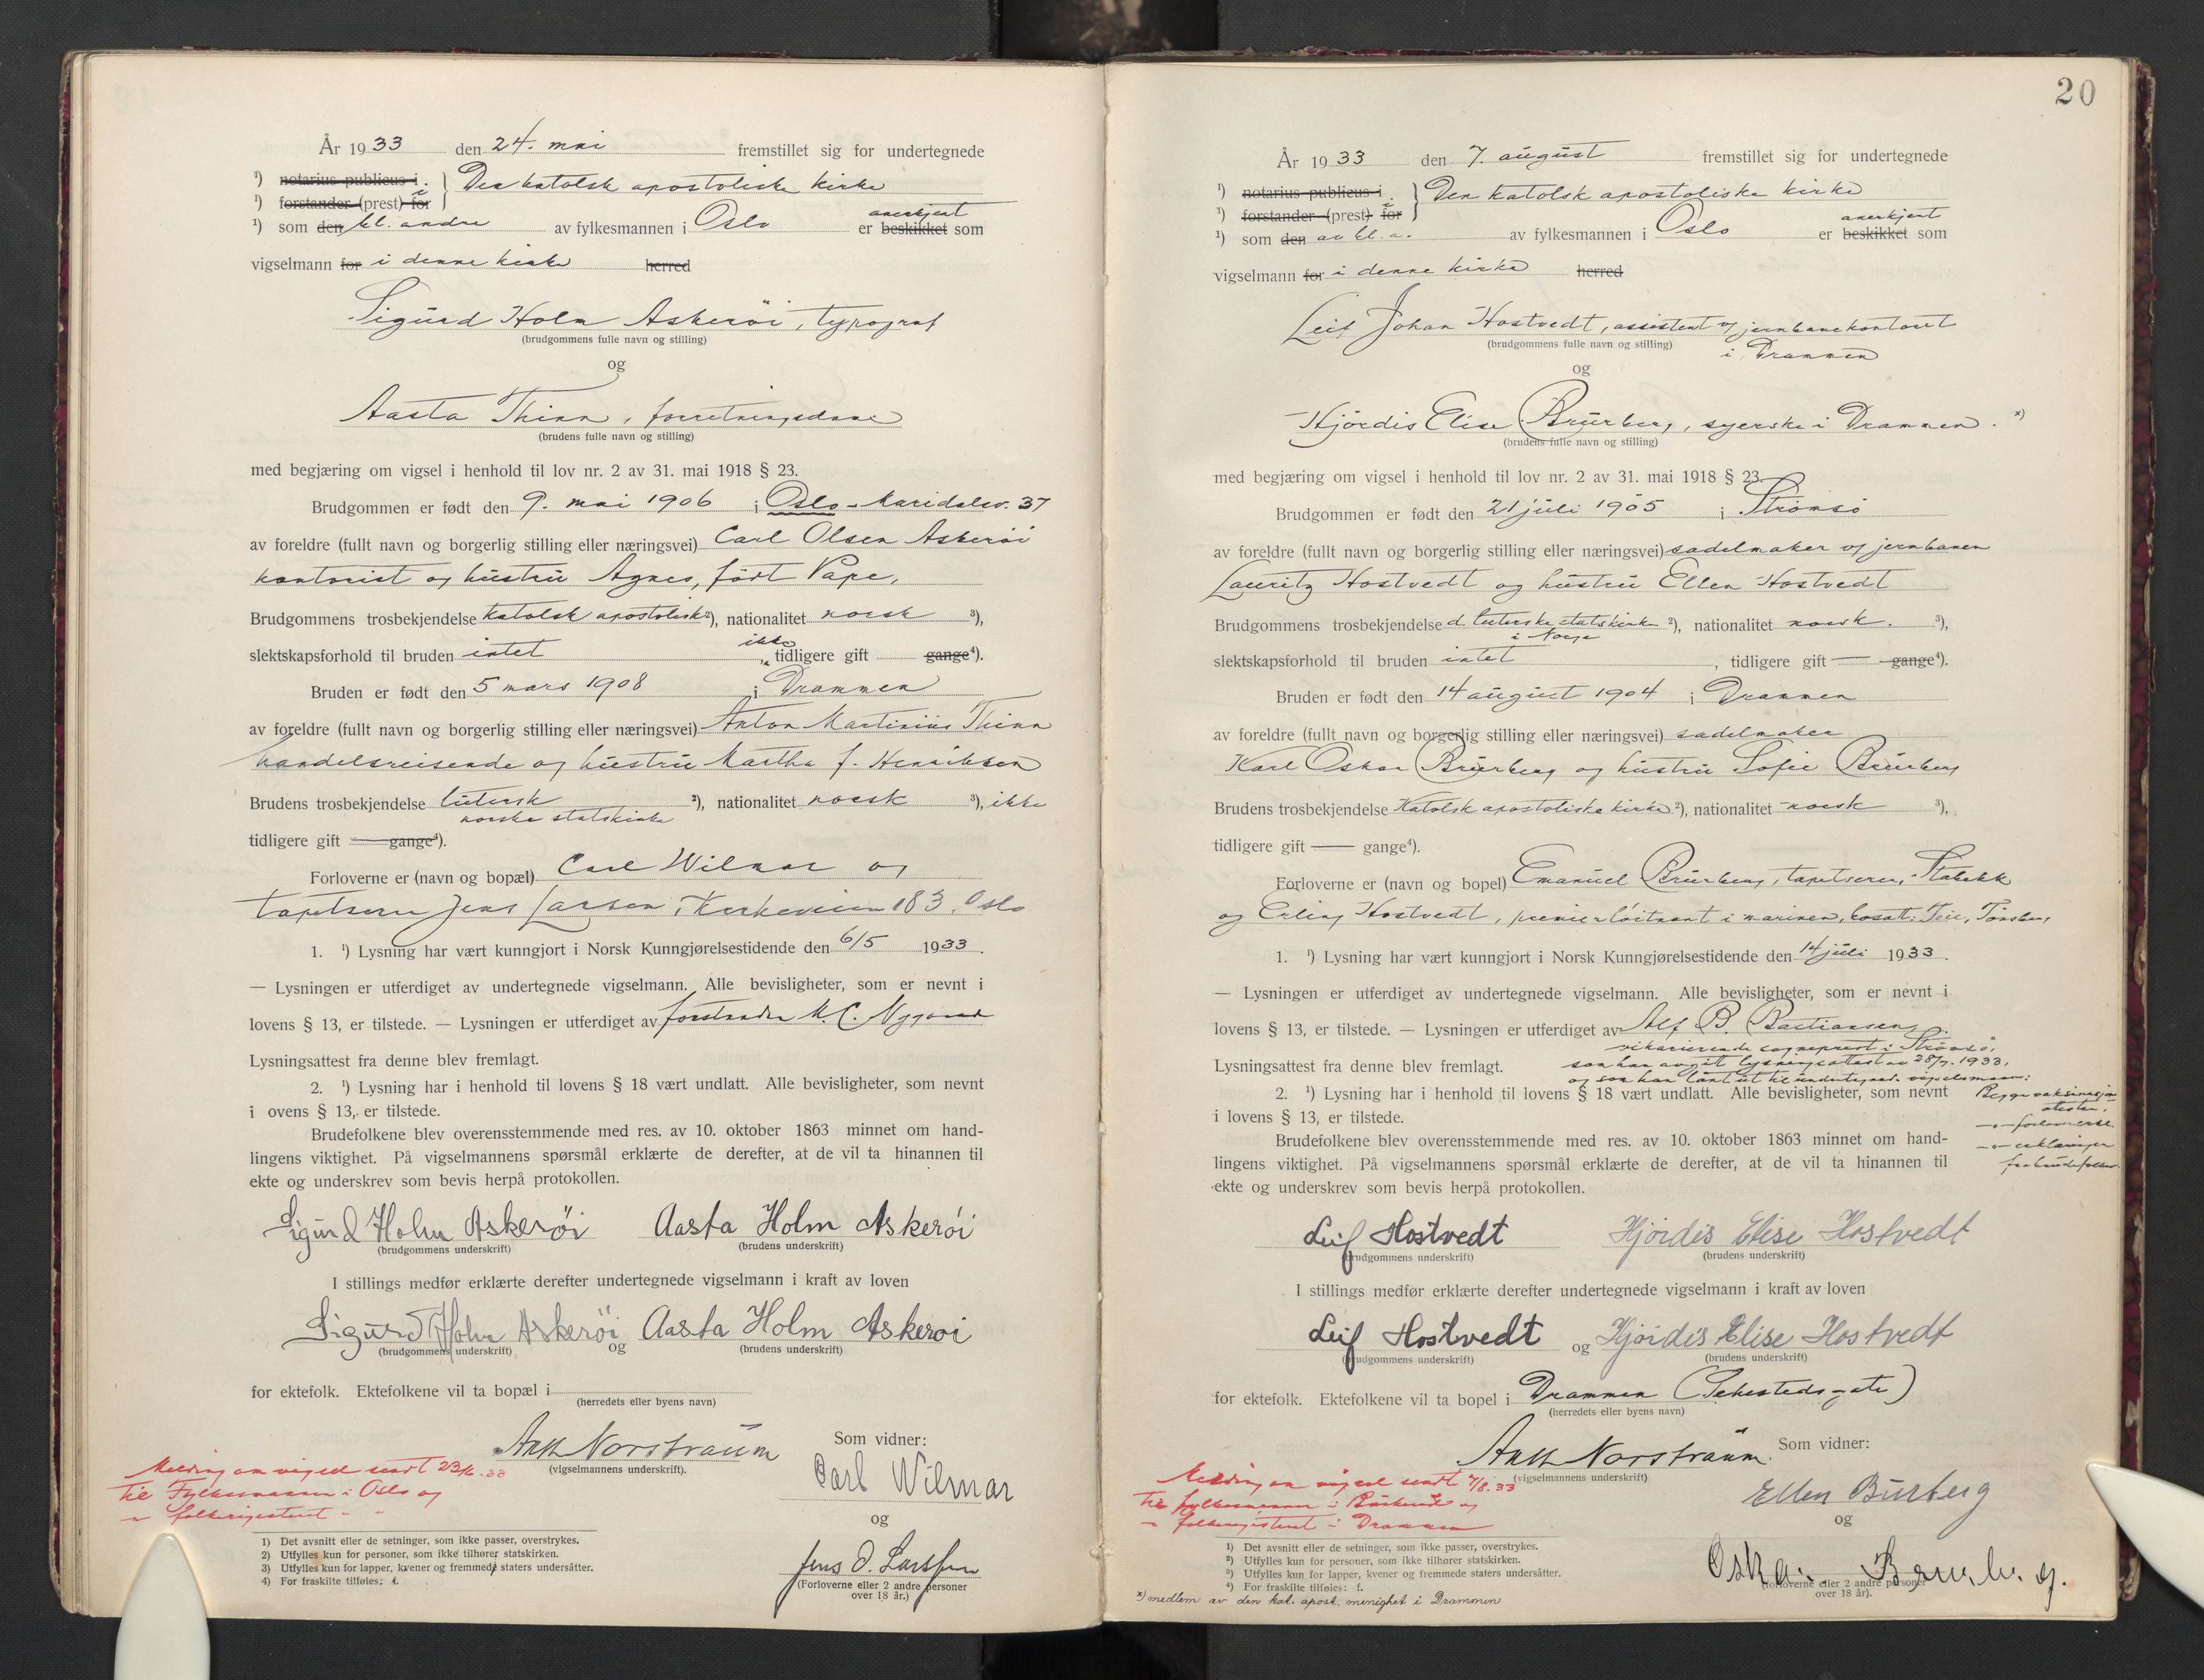 År 1933 den 24. mai fremstillet sig for undertegnede
¹) notarius publicus i i } Den katolsk apostoliske kirke
¹) forstander (prest) for
anerkjent
¹) som den bl. andre av fylkesmannen i Oslo er beskikket som
vigselmann for i denne kirke herred
Sigurd Holm Askeröi, typograf
(brudgommens fulle navn og stilling)
og
Aasta Thinn, forretningsdame
(brudens fulle navn og stilling)
med begjæring om vigsel i henhold til lov nr. 2 av 31. mai 1918 § 23.
Brudgommen er født den 9. mai 1906 i Oslo - Maridalsv. 37
av foreldre (fullt navn og borgerlig stilling eller næringsvei) Carl Olsen Askeröi
kontorist og hustru Agnes, født Pape,
Brudgommens trosbekjendelse katolsk apostolisk ²), nationalitet norsk ³),
ikke
slektskapsforhold til bruden intet „ tidligere gift gange⁴).
Bruden er født den 5 mars 1908 i Drammen
av foreldre (fullt navn og borgerlig stilling eller næringsvei) Anton Martinius Thinn
handelsreisende og hustru Martha f. Henriksen
Brudens trosbekjendelse lutersk ²), nationalitet norsk ³), ikke
norske statskirke
tidligere gift — gange⁴).
Forloverne er (navn og bopæl) Carl Wilmar og
tapetserer Jens Larsen, Kirkeveien 183, Oslo
1. ¹) Lysning har vært kunngjort i Norsk Kunngjørelsestidende den 6/5 1933.
— Lysningen er utferdiget av undertegnede vigselmann. Alle bevisligheter, som er nevnt i
lovens § 13, er tilstede. — Lysningen er utferdiget av forstander M. C. Nygaard
Lysningsattest fra denne blev fremlagt.
2. ¹) Lysning har i henhold til lovens § 18 vært undlatt. Alle bevisligheter, som nevnt
i ovens § 13, er tilstede.
Brudefolkene blev overensstemmende med res. av 10. oktober 1863 minnet om hand-
lingens viktighet. På vigselmannens spørsmål erklærte de derefter, at de vil ta hinannen til
ekte og underskrev som bevis herpå protokollen.
Sigurd Holm Askeröi Aasta Holm Askeröi
(brudgommens underskrift) (brudens underskrift)
I stillings medfør erklærte derefter undertegnede vigselmann i kraft av loven
Sigurd Holm Askeröi og Aasta Holm Askeroi
(brudgommens underskrift) (brudens underskrift)
for ektefolk. Ektefolkene vil ta bopæl i
(herredets eller byens navn)
Ansh Norstraum Som vidner:
(vigselmannens underskrift).
Carl Wilmar
og
Jens O. Larssen
(Forloverne eller 2 andre personer
over 18 år.)
Melding om vigsel sendt 23/6.33
til Fylkesmannen i Oslo og
„ folkeregisteret - -
1) Det avsnitt eller de setninger, som ikke passer, overstrykes.
2) Utfylles kun for personer, som ikke tilhører statskirken.
3) Utfylles kun for lapper, kvener og fremmede staters undersåtter.
4) For fraskilte tilføies: f.
20
År 1933 den 7. august fremstillet sig for undertegnede
¹) notarius publicus i i } Den katolsk apostoliske kirke
¹) forstander (prest) for
anerkjent
¹) som den av bl. a. av fylkesmannen i Oslo er beskikket som
vigselmann for i denne kirke herred
Leif Johan Hostvedt, assistent v jernbanekontoret
(brudgommens fulle navn og stilling) i Drammen
og
Hjördis Elise Brurberg, syerske i Drammen. ˣ)
(brudens fulle navn og stilling)
med begjæring om vigsel i henhold til lov nr. 2 av 31. mai 1918 § 23.
Brudgommen er født den 21 juli 1905 i Strømsö
av foreldre (fullt navn og borgerlig stilling eller næringsvei) sadelmaker v jernbanen
Lauritz Hostvedt og hustru Ellen Hostvedt
Brudgommens trosbekjendelse d. luterske statskirke ²), nationalitet norsk. ³),
i Norge
slektskapsforhold til bruden intet, tidligere gift — gange⁴).
Bruden er født den 14 august 1904 i Drammen
av foreldre (fullt navn og borgerlig stilling eller næringsvei) sadelmaker
Karl Oskar Brurberg og hustru Sofie Brurberg
Brudens trosbekjendelse Katolsk apostoliske kirke ²), nationalitet norsk ³),
tidligere gift — gange⁴).
Forloverne er (navn og bopel) Emanuel Brurberg, tapetserer, Stabekk
og Erling Hostvedt, premierløitnant i marinen, bosatt: Teie, Tønsberg
1. ¹) Lysning har vært kunngjort i Norsk Kunngjørelsestidende den 14 juli 1933.
— Lysningen er utferdiget av undertegnede vigselmann. Alle bevisligheter, som er nevnt i
lovens § 13, er tilstede. — Lysningen er utferdiget av Alf B. Bastiansen,
vikarierende sogneprest i Strömsö,
Lysningsattest fra denne blev fremlagt. som har avgitt lysningsattest av 28/7. 1933,
og som han lånt ut til undertegnede vigselsmann:
2. ¹) Lysning har i henhold til lovens § 18 vært undlatt. Alle bevisligheter, som nevnt
i lovens § 13, er tilstede.
Begge vaksinasjons
attester,
-"- forloverne
-"- erklæringer
fra brudefolket
Brudefolkene blev overensstemmende med res. av 10. oktober 1863 minnet om hand-
lingens viktighet. På vigselmannens spørsmål erklærte de derefter, at de vil ta hinannen til
ekte og underskrev som bevis herpå protokollen.
Leif Hostvedt Hjördis Elise Hostvedt
(brudgommens underskrift) (brudens underskrift)
I stillings medfør erklærte derefter undertegnede vigselmann i kraft av loven
Leif Hostvedt og Hjördis Elise Hostvedt
(brudgommens underskrift) (brudens underskrift)
for ektefolk. Ektefolkene vil ta bopel i Drammen (Sehestedsgate)
(herredets eller byens navn)
Ansh Norstraum. Som vidner:
(vigselmannens underskrift)
Ellen Burberg
og
Oskar Brurberg.
(forloverne eller 2 andre personer
over 18 år).
Melding om vigsel sendt 9/8.33
til fylkesmannen i Buskerud og
„ folkeregisteret i Drammen
1) Det avsnitt eller de setninger, som ikke passer, overstrykes.
²) Utfylles kun for personer, som ikke tilhører statskirken.
³) Utfylles kun for lapper, kvener og fremmede staters undersåtter.
⁴) For fraskilte tilføies: f.
ˣ) medlem av den kat. apost. menighet i Drammen